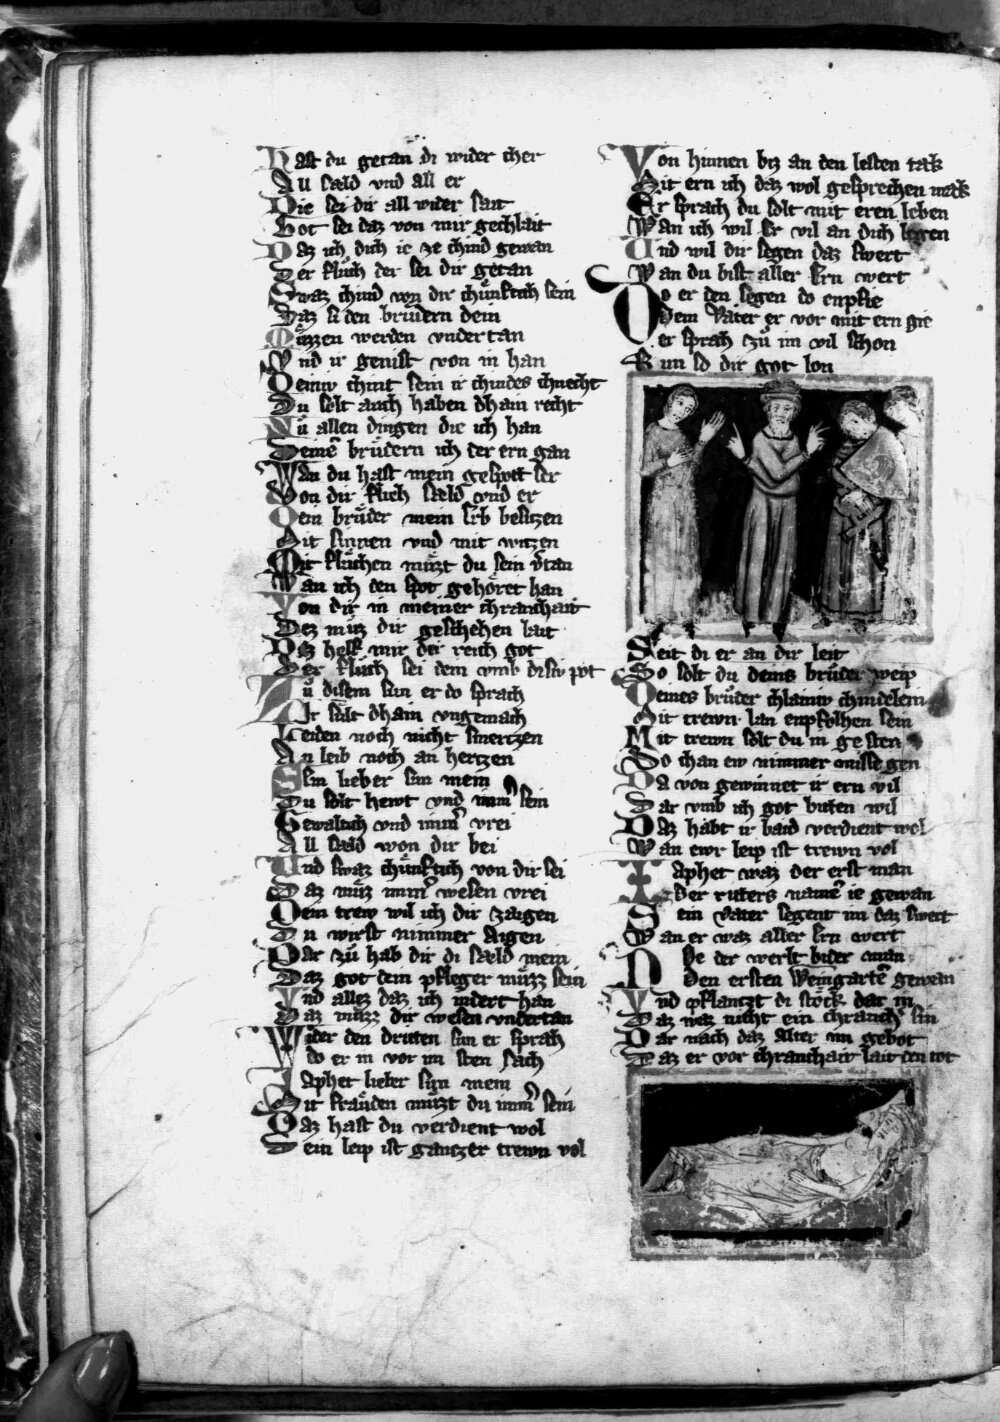 Hast du getan di wider cher
All sæld vnd all er
Die sei dir all wider sait
Got sei daz von mir gechlait
Daz ich dich ie ze chind gewan
Der flůch der sei dir getan
Swaz chind von dir chůnftich sein
Daz si den brůdern dein
Můzzen werden vndertan
Vnd ir genist von in han
Deinev chint sein ir chindes chnecht
Du solt auch haben dhain recht
Zů allen dingen die ich han
Deinē brůdern ich der ern gan
Wan du hast mein gespott ser
Von dir flich sæld vnd er
Dein brůder mein erb besitzen
Mit sinnen vnd mit witzen
Mit flůchen můzt du sein vtan
Wan ich den spot gehöret han
Von dir in meiner chranchait
Dez můz dir geschehen lait
Dez helf mir der reich got
Der flůch sei dem vmb disiv pot
Zů disem sun er do sprach
Dir sült dhain vngemach
Leiden noch nicht smertzen
An leib noch an hertzen
Sim lieber sun mein
Du solt hewt vnd imm̄ sein
Gewaltich vnd imm̄ vrei
All sæld won dir bei
Vnd swaz chůnftich von dir sei
Daz můz imm̄ wesen vrei
Dein trew wil ich dir zaigen
Du wirst nimmer aigen
Dar zů hab dir di sæld mein
Daz got dein pfleger můzz sein
Vnd allez daz ich indert han
Daz můzz dir wesen vndertan
Wider den dritten sun er sprah
Do er in vor im sten sach
Iaphet lieber sun mein
Mit fräuden můzt du imm̄ sein
Daz hast du verdient wol
Dein leip ist gantzer trewn vol
Von hinnen biz an den lesten tak
Mit ern ich daz wol gesprechen mak
Er sprach du solt mit eren leben
Wan ich wil er vil an dich legen
Vnd wil dir segen daz swert
Wan du bist aller ern wert
Do er den segen do enpfie
Dem vater er vor mit ern gie
Er sprah zů im vil schon
Nun so dir got lon
Seit di er an dir leit
So solt du deins brůder weip
Deines brůder chlainiv chindelein
Mit trewn lan enpfolhen sein
Mit trewn solt du in gesten
So chan ew nimmer misse gen
Da von gewinnet ir ern vil
Dar vmb ich got biten wil
Daz habt ir baid verdient wol
Wan ewr leip ist trewn vol
Iaphet waz der erst man
Der ritters namē ie gewan
Sein vater segent im daz swert
Wan er waz aller ern wert
Noe der werlt bider man
Den ersten Weingartē gewan
Vnd pflantzt di stöck dar in
Daz waz nicht ein chranch sin
Dar nach daz alter im gebot
Daz er vor chranchait lait den tot